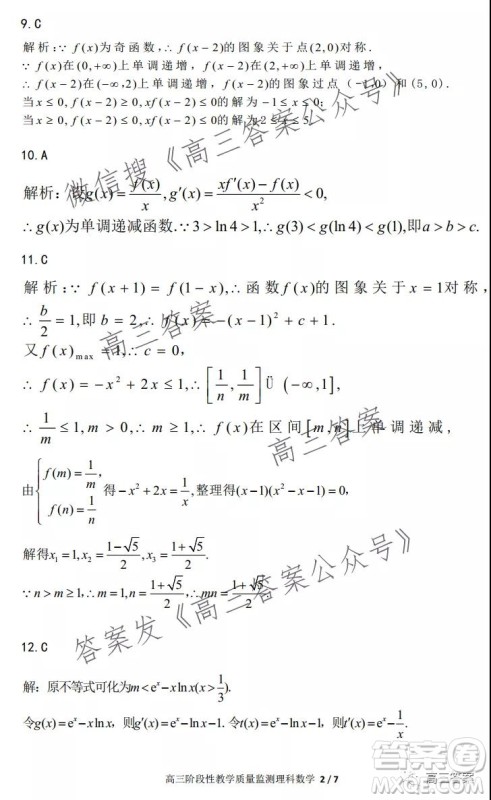 9.C
解析:∵ f(x)为奇函数,∴ f(x−2)的图象关于点(2,0)对称.
∵ f(x)在(0,+∞)上单调递增,∴ f(x−2)在(2,+∞)上单调递增,
∴ f(x−2)在(−∞,2)上单调递增,∴ f(x−2)的图象过点(−1,0)和(5,0).
当x≤0,f(x−2)≥0,xf(x−2)≤0的解为−1≤x≤0;
当x≥0,f(x−2)≤0,xf(x−2)≤0的解为2≤x≤5.
10.A
解析:设g(x)=f(x)/x,g′(x)=(xf′(x)−f(x))/x²<0,
∴g(x)为单调递减函数.∵3>ln4>1,∴g(3)<g(ln4)<g(1),即a>b>c.
11.C
解析:∵ f(x+1)=f(1−x),∴函数f(x)的图象关于x=1对称,
∴b/2=1,即b=2,∴f(x)=−(x−1)²+c+1.
又f(x)max=1,∴c=0,
∴f(x)=−x²+2x≤1,∴[1/n,1/m]Ü(−∞,1],
∴1/m≤1,m>0,∴m≥1,∴f(x)在区间[m,n]上单调递减,
由{f(m)=1/m, f(n)=1/n 得−x²+2x=1/x,整理得(x−1)(x²−x−1)=0,
解得x₁=1,x₂=(1−√5)/2,x₃=(1+√5)/2.
∵n>m≥1,∴m=1,n=(1+√5)/2,∴mn=(1+√5)/2.
12.C
解:原不等式可化为m<eˣ−xlnx(x>1/3).
令g(x)=eˣ−xlnx,则g′(x)=eˣ−lnx−1.令t(x)=eˣ−lnx−1,则t′(x)=eˣ−1/x.
高三阶段性教学质量监测理科数学 2/7
微信搜《高三答案公众号》
高三答案
高三答案
答案发《高三答案公众号》
高三答案